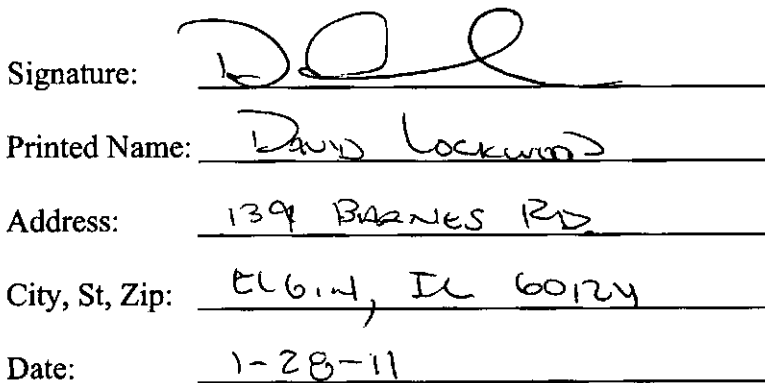 Signature:
Printed Name: DAVID LOCKWOOD
Address: 139 BARNES RD
City, St, Zip: ELGIN, IL 60124
Date: 1-28-11